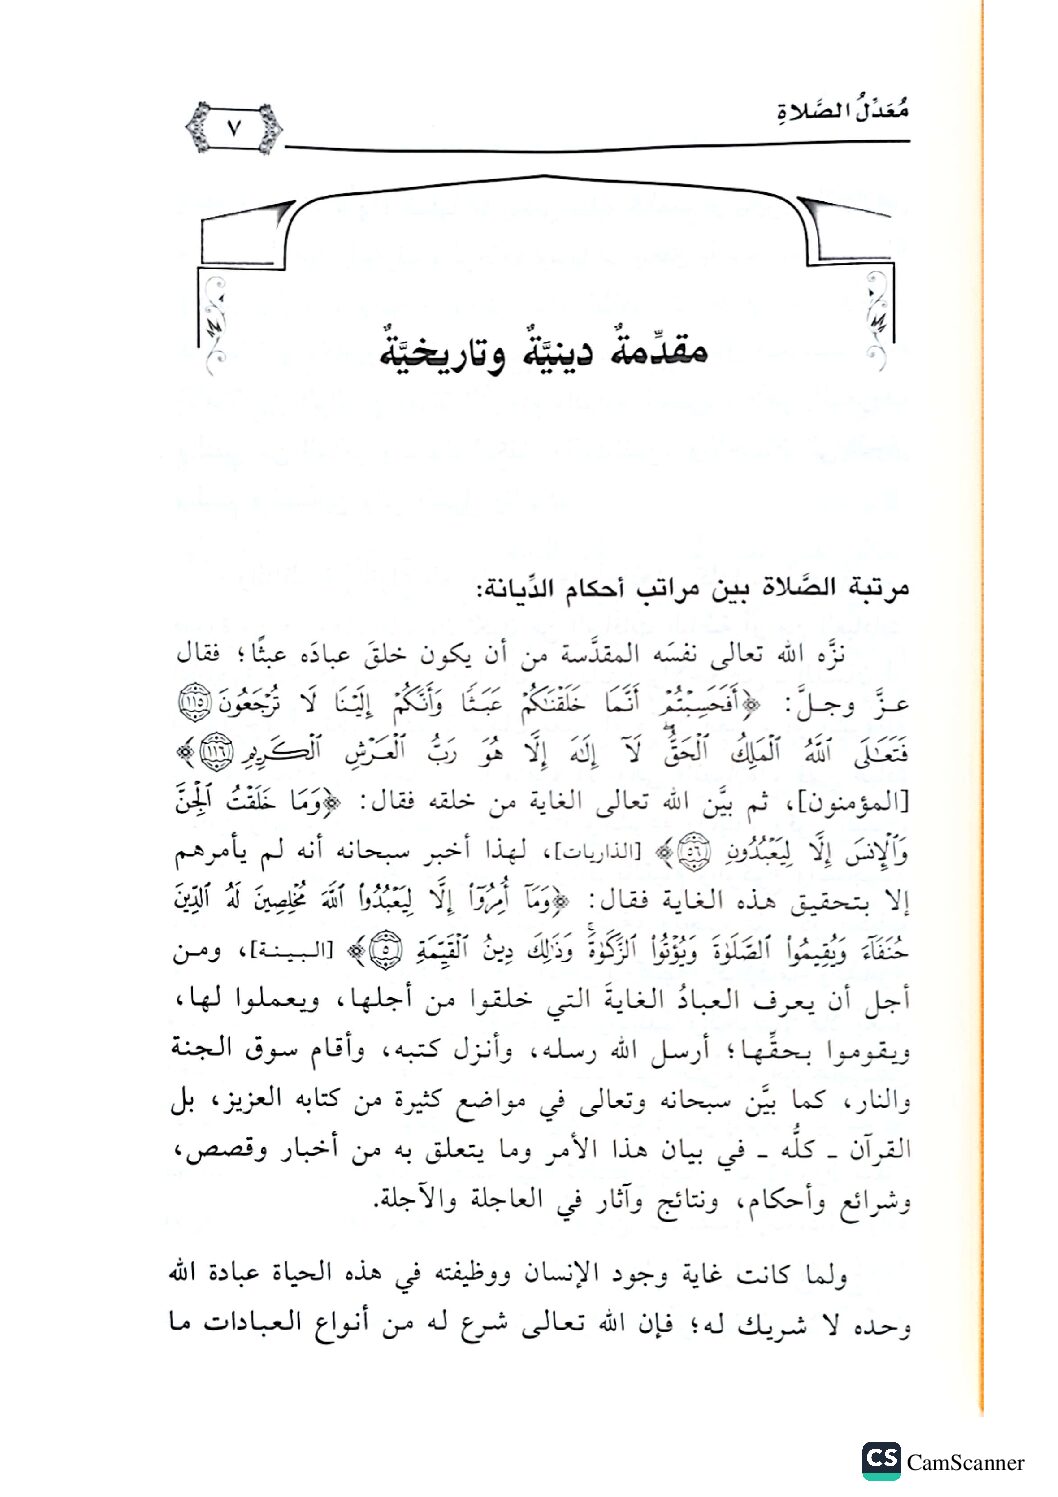 مُعَدِّلُ الصَّلاةِ
٧
مقدِّمةٌ دينيَّةٌ وتاريخيَّةٌ
مرتبة الصَّلاة بين مراتب أحكام الدِّيانة:
نزَّه الله تعالى نفسَه المقدَّسة من أن يكون خلقَ عبادَه عبثًا؛ فقال
عزَّ وجلَّ: ﴿أَفَحَسِبْتُمْ أَنَّمَا خَلَقْنَٰكُمْ عَبَثًا وَأَنَّكُمْ إِلَيْنَا لَا تُرْجَعُونَ ١١٥
فَتَعَٰلَى ٱللَّهُ ٱلْمَلِكُ ٱلْحَقُّ ۖ لَآ إِلَٰهَ إِلَّا هُوَ رَبُّ ٱلْعَرْشِ ٱلْكَرِيمِ ١١٦﴾
[المؤمنون]، ثم بيَّن الله تعالى الغاية من خلقه فقال: ﴿وَمَا خَلَقْتُ ٱلْجِنَّ
وَٱلْإِنسَ إِلَّا لِيَعْبُدُونِ ٥٦﴾ [الذاريات]، لهذا أخبر سبحانه أنه لم يأمرهم
إلا بتحقيق هذه الغاية فقال: ﴿وَمَآ أُمِرُوٓا۟ إِلَّا لِيَعْبُدُوا۟ ٱللَّهَ مُخْلِصِينَ لَهُ ٱلدِّينَ
حُنَفَآءَ وَيُقِيمُوا۟ ٱلصَّلَوٰةَ وَيُؤْتُوا۟ ٱلزَّكَوٰةَ ۚ وَذَٰلِكَ دِينُ ٱلْقَيِّمَةِ ٥﴾ [البينة]، ومن
أجل أن يعرف العبادُ الغايةَ التي خلقوا من أجلها، ويعملوا لها،
ويقوموا بحقِّها؛ أرسل الله رسله، وأنزل كتبه، وأقام سوق الجنة
والنار، كما بيَّن سبحانه وتعالى في مواضع كثيرة من كتابه العزيز، بل
القرآن ـ كلُّه ـ في بيان هذا الأمر وما يتعلق به من أخبار وقصص،
وشرائع وأحكام، ونتائج وآثار في العاجلة والآجلة.
ولما كانت غاية وجود الإنسان ووظيفته في هذه الحياة عبادة الله
وحده لا شريك له؛ فإن الله تعالى شرع له من أنواع العبادات ما
CS CamScanner